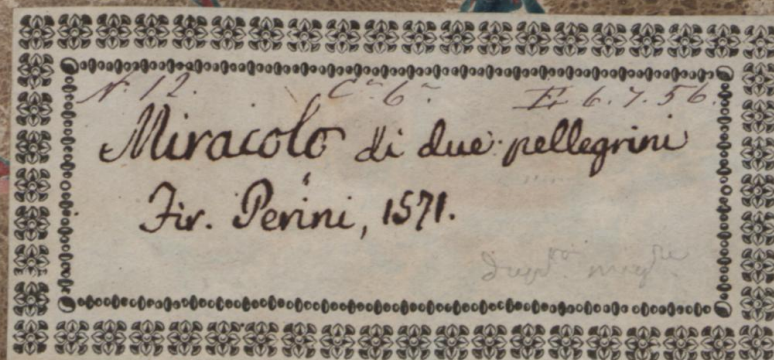 N. 12. Ca. 6a. E. 6. 7. 56.
Miracolo di due pellegrini
Fir. Perini, 1571.